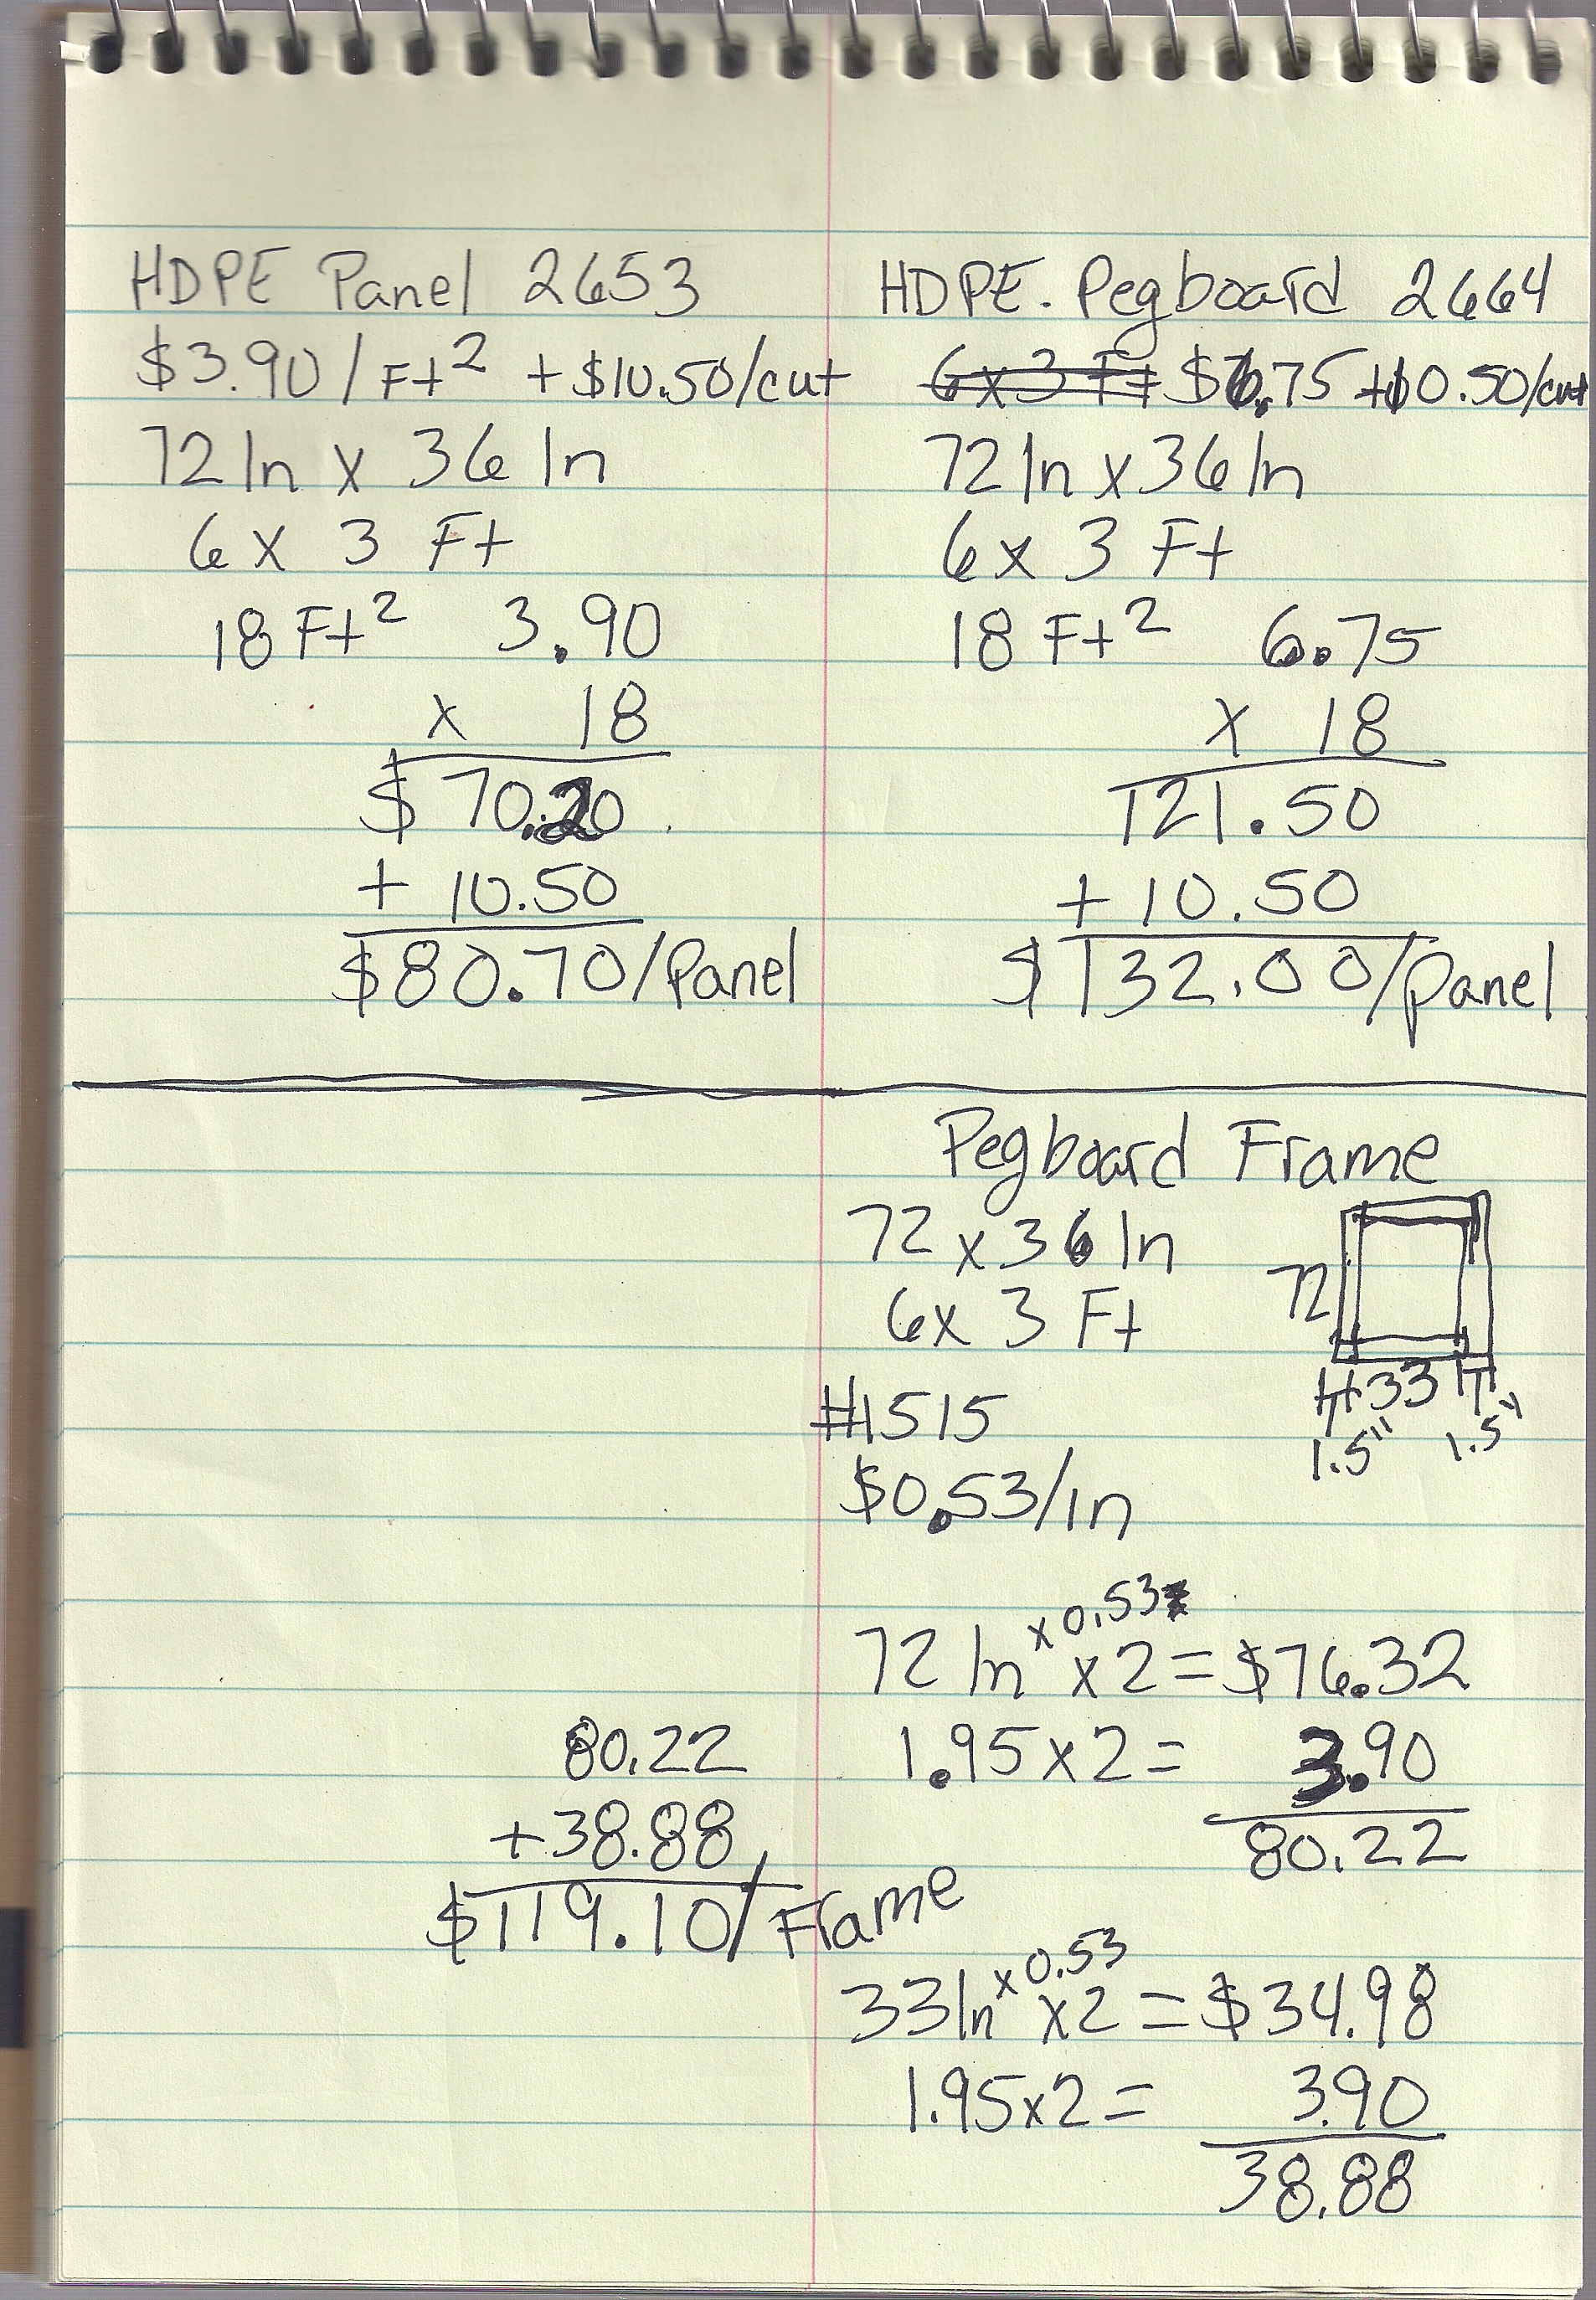 HDPE Panel 2653
$3.90/Ft² +$10.50/cut
72 In x 36 In
6 x 3 Ft
18 Ft² 3.90
x 18
$70.20
+ 10.50
$80.70/Panel
HDPE. Pegboard 2664
6x3 Ft $6.75 +$10.50/cut
72 In x 36 In
6 x 3 Ft
18 Ft² 6.75
x 18
121.50
+ 10.50
$132.00/panel
Pegboard Frame
72 x 36 In
6x 3 Ft
#1515
$0.53/in
72
33
1.5" 1.5"
x 0.53
72 In x 2 = $76.32
1.95 x 2 = 3.90
80.22
x 0.53
33 In x 2 = $34.98
1.95 x 2 = 3.90
38.88
80.22
+38.88
$119.10/Frame